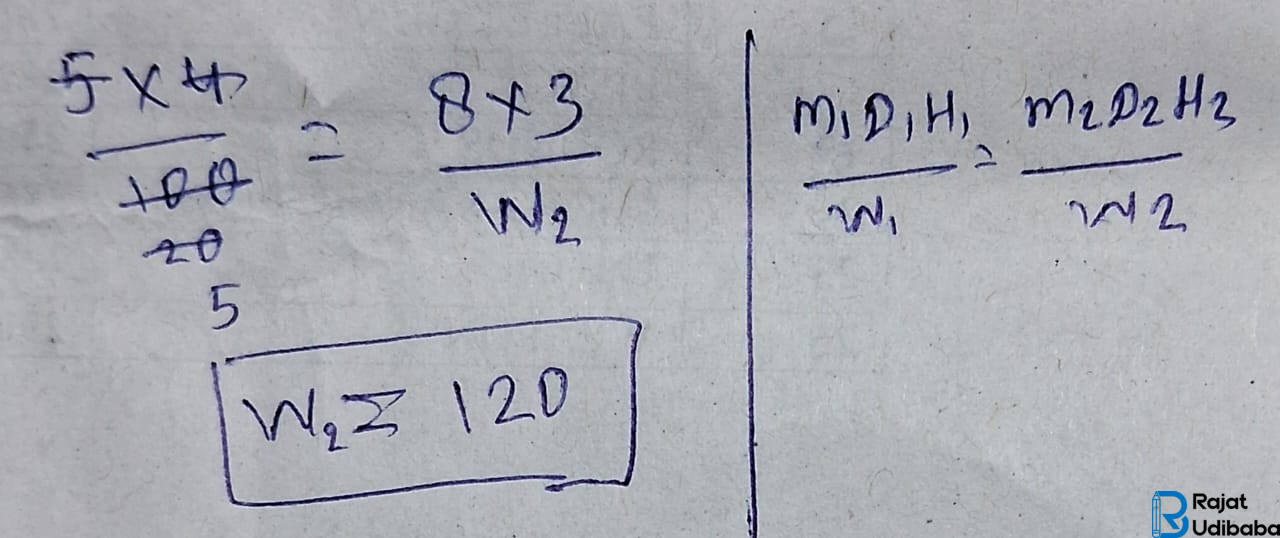 5 × 4 / 100 = 8 × 3 / W2
20
5
W2 = 120
m1D1H1 / W1 = m2D2H3 / W2
Rajat
Udibaba